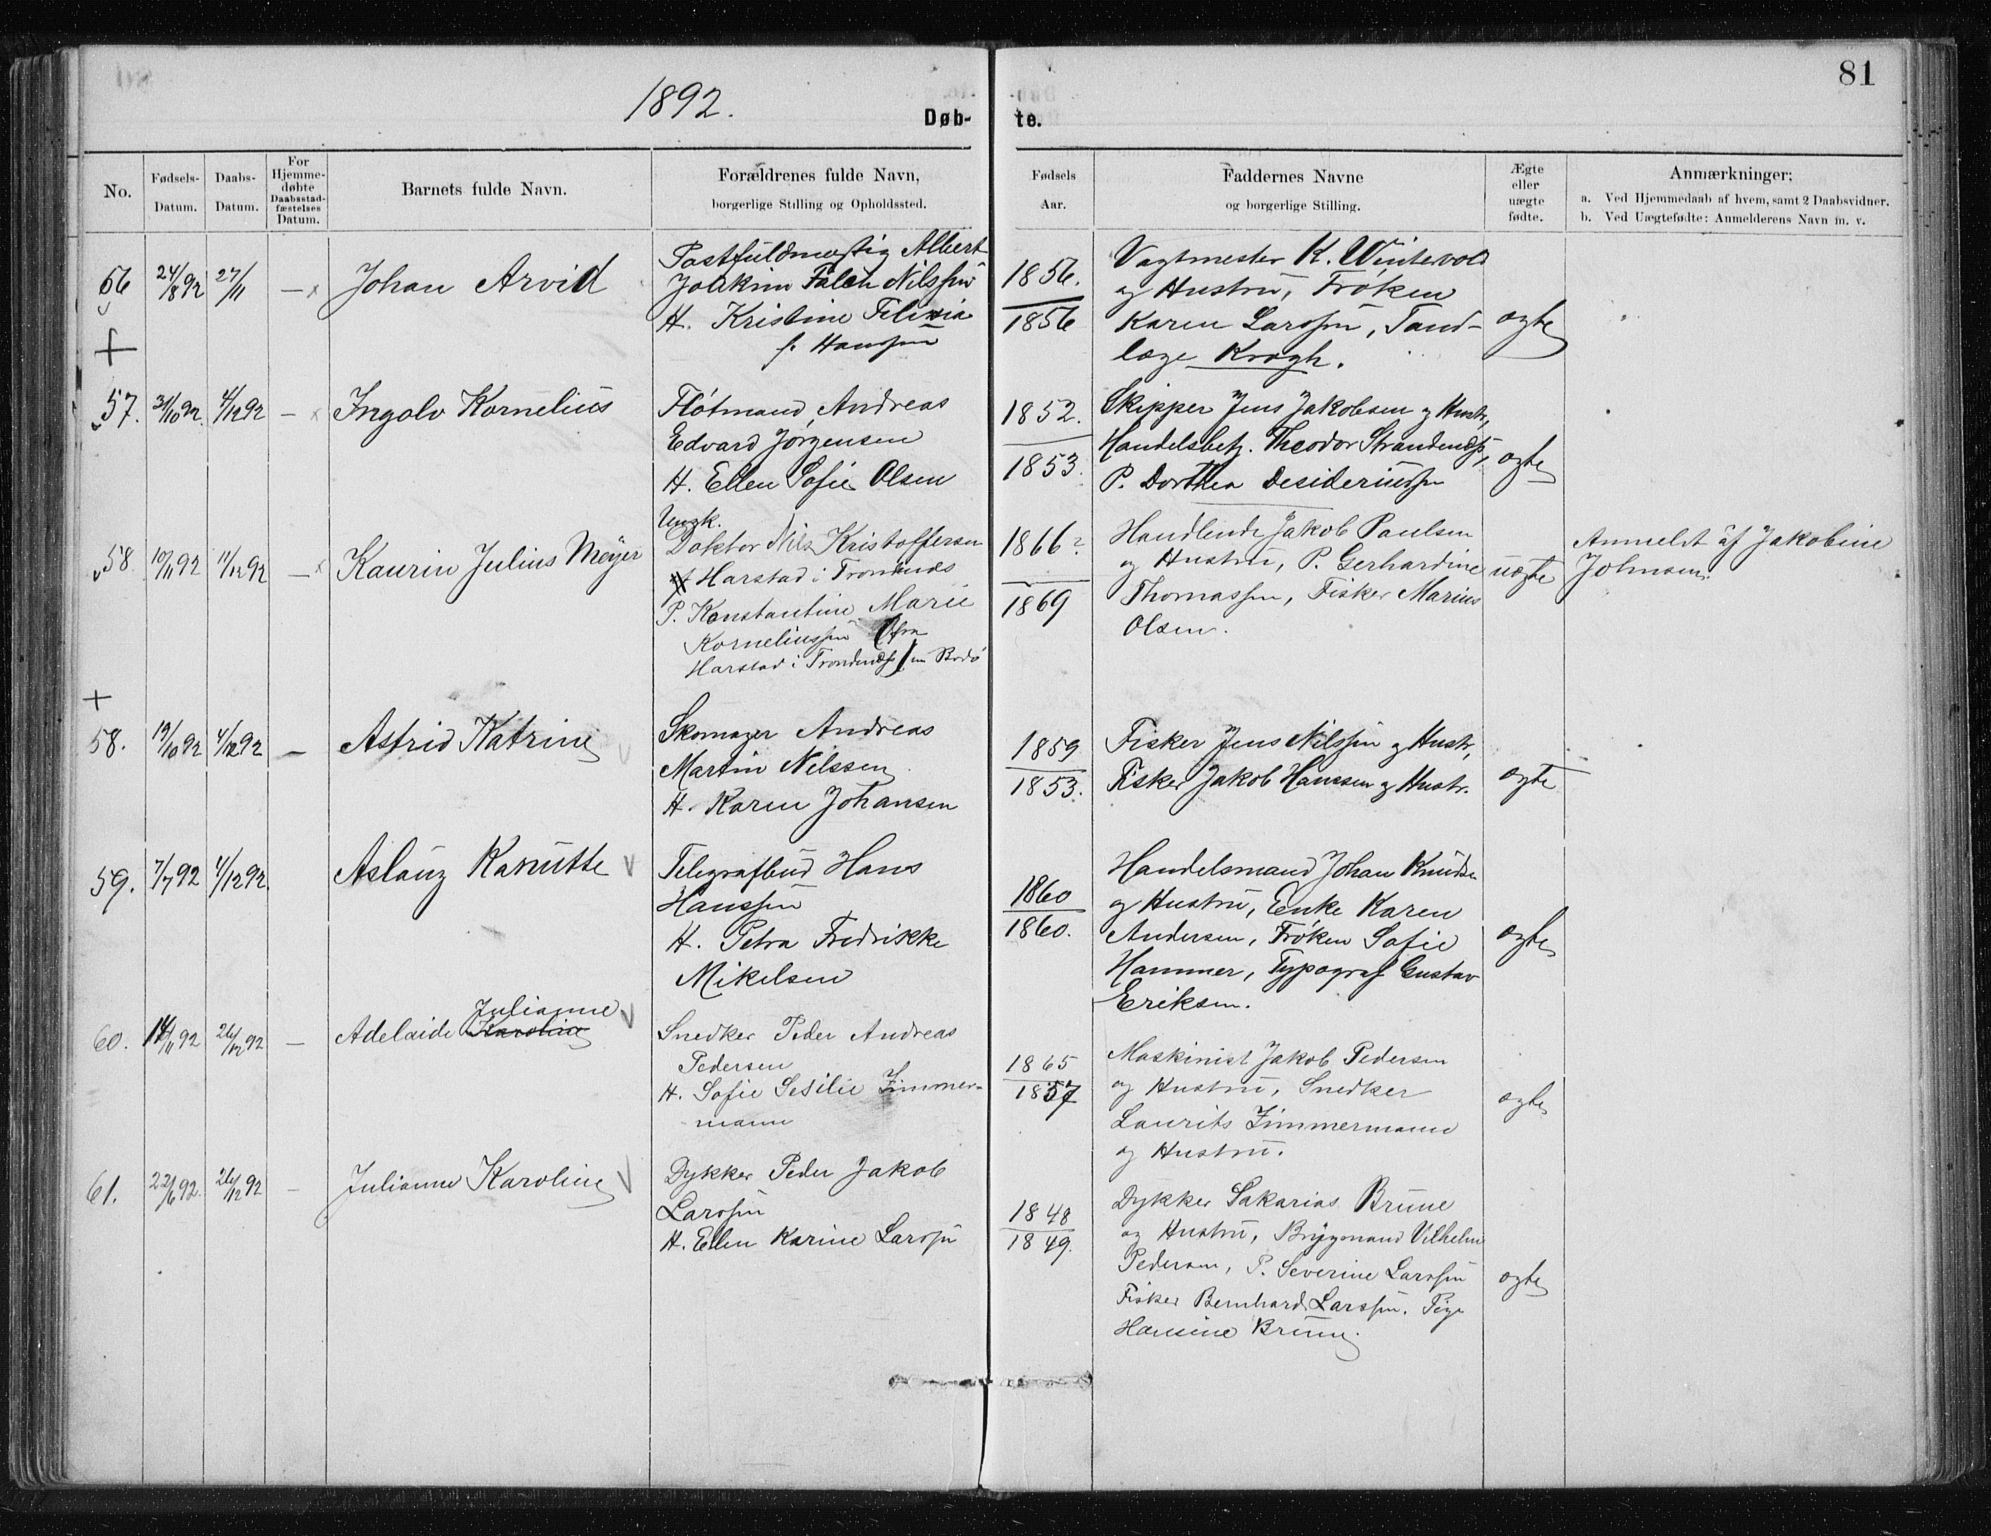 81
1892.
Døb-
te.
No.
Fødsels-
Datum.
Daabs-
Datum.
For
Hjemme-
døbte
Daabsstad-
fæstelses
Datum.
Barnets fulde Navn.
Forældrenes fulde Navn,
borgerlige Stilling og Opholdssted.
Fødsels
Aar.
Faddernes Navne
og borgerlige Stilling.
Ægte
eller
uægte
fødte.
Anmærkninger:
a. Ved Hjemmedaab af hvem, samt 2 Daabsvidner.
b. Ved Uægtefødte: Anmelderens Navn m. v.
56 24/8 92 27/11 —
Johan Arvid
Postfuldmægtig Albert
Joakim Falch Nilssen
H. Kristine Felixia
f. Hanssen
1856.
1856
Vagtmester K. Wintervold
og Hustru, Frøken
Karen Larssen, Tand-
læge Krogh.
ægte
57. 31/10 92. 4/12 92 —
Ingolv Kornelius
Fløtmand Andreas
Edvard Jørgensen
H. Ellen Sofie Olsen
1852.
1853.
Skipper Jens Jakobsen og Hustr,
Handelsbetj. Theodor Strandenæs,
P. Dorthea Desideriussen
ægte
58 10/11 92 11/12 92 —
Kaurin Julius Meyer
Ungk.
Doktor Nils Kristoffersen
Harstad i Trondenæs
P. Konstantine Marie
Korneliussen (fra
Harstad i Trondenæs) nu Bodø
1866?
1869
Handlende Jakob Paulsen
og Hustru, P. Gerhardine
Thomassen, Fisker Marius
Olsen.
uægte
Anmeldt af Jakobine
Johnsen.
58. 19/10 92 4/12 92 —
Astrid Katrine
Skomager Andreas
Martin Nilssen
H. Karen Johansen
1859
1853.
Fisker Jens Nilssen og Hustr,
Fisker Jakob Hanssen og Hustr.
ægte
59. 7/7 92 4/12 92.
Aslaug Kanutte
Telegrafbud Hans
Hanssen
H. Petra Fredrikke
Mikelsen
1860
1860.
Handelsmand Johan Knudsen
og Hustru, Enke Karen
Andersen, Frøken Sofie
Hammer, Typograf Gustav
Eriksen.
ægte
60. 14/11 92 26/12 92 —
Julianne
Adelaide Karoline
Snedker Peder Andreas
Pedersen
H. Sofie Sesilie Zimmer-
mann
1865
1857
Maskinist Jakob Pedersen
og Hustru, Snedker
Laurits Zimmermann
og Hustru.
ægte
61. 22/6 92. 26/12 92 —
Julianne Karoline
Dykker Peder Jakob
Larssen
H. Ellen Karine Larssen
1848
1849.
Dykker Sakarias Brune
og Hustru, Bryggmand Vilhelm
Pedersen, P. Severine Larssen
Fisker Bernhard Larssen. Pige
Hansine Brune.
ægte